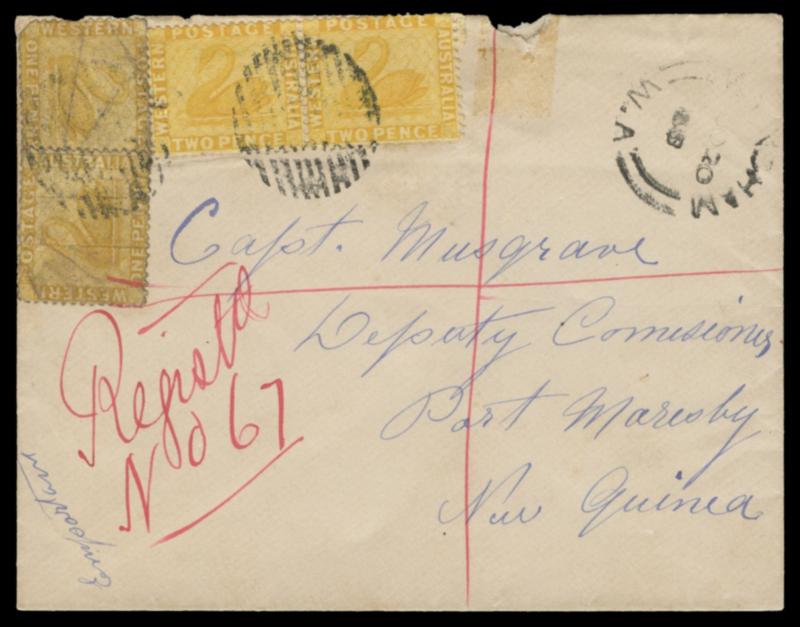 WESTERN
ONE PENNY
AUSTRALIA
POSTAGE
ONE PE
WESTERN
POSTAGE
WESTERN
AUSTRALIA
TWO PENCE
POSTAGE
WESTERN
AUSTRALIA
TWO PENCE
HAM
W.A
20
Capt. Musgrave
Deputy Comisioner
Port Moresby
New Guinea
Registd
No 67